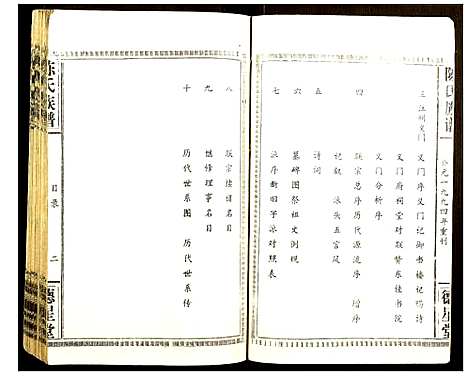 陈氏族谱
公元一九九四年重刊
德星堂
三 江州义门
义门序义门记御书楼记旌诗
义门府祠堂对联赞东佳书院
义门分析序
四 联宗总序历代源流序 增序
记叙 派头五言
五 诗词
六 墓碑图祭祖文
七 派序新旧字派对照表
八 联宗
名目
九 继修理事名目
十 历代世系图 历代世系传
陈氏族谱
目录
二
德星堂